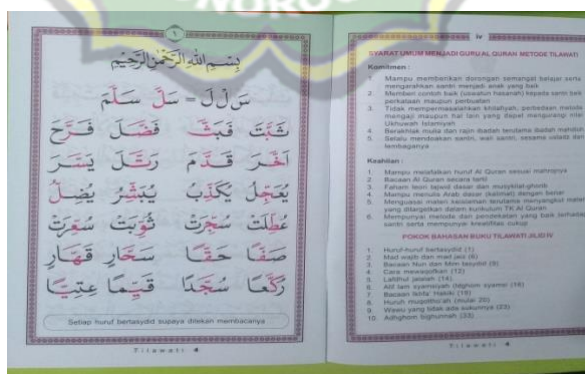 NOROGO
١
بِسْمِ اللهِ الرَّحْمٰنِ الرَّحِيْمِ
سَ لْ لَ = سَلَّ سَلَّمَ
ثَبَّتَ فَبَثَّ فَضَّلَ فَرَّحَ
اَخَّرَ قَدَّمَ رَتَّلَ يَسَّرَ
يُعَجِّلُ يُكَذِّبُ يُبَشِّرُ يُفَضِّلُ
عُطِّلَتْ سُجِّرَتْ ثُوِّبَتْ سُعِّرَتْ
صَفًّا حَقًّا سَحَّارٍ قَهَّارٍ
رُكَّعًا سُجَّدًا قَيِّمًا عِتِيًّا
Setiap huruf bertasydid supaya ditekan membacanya
Tilawati 4
iv
SYARAT UMUM MENJADI GURU AL QURAH METODE TILAWATI
Komitmen :
1. Mampu memberikan dorongan semangat belajar serta
mengarahkan santri menjadi anak yang baik
2. Memberi contoh baik (uswatun hasanah) kepada santri baik
perkataan maupun perbuatan
3. Tidak mempermasalahkan khilafiyah, perbedaan metode
mengaji maupun hal lain yang dapat mengurangi nilai
Ukhuwah Islamiyah
4. Berakhlak mulia dan rajin ibadah terutama ibadah mahdloh
5. Selalu mendoakan santri, wali santri, sesama ustadz dan
lembaganya
Keahlian :
1. Mampu melafalkan huruf Al Quran sesuai mahrojnya
2. Bacaan Al Quran secara tartil
3. Faham teori tajwid dasar dan musykilat-ghorib
4. Mampu menulis Arab dasar (kalimat) dengan benar
5. Menguasai materi keislaman terutama menyangkut materi
yang ditargetkan dalam kurikulum TK Al Quran
6. Mempunyai metode dan pendekatan yang baik terhadap
santri serta mempunyai kreatifitas cukup
POKOK BAHASAN BUKU TILAWATI JILID IV
1. Huruf-huruf bertasydid (1)
2. Mad wajib dan mad jaiz (6)
3. Bacaan Nun dan Mim tasydid (9)
4. Cara mewaqofkan (12)
5. Lafdhul jalalah (14)
6. Alif lam syamsiyah (Idghom syamsi) (16)
7. Bacaan Ikhfa' Hakiki (18)
8. Huruh muqottho'ah (mulai 20)
9. Wawu yang tidak ada sukunnya (23)
10. Adhghom bighunnah (33)
Tilawati 4